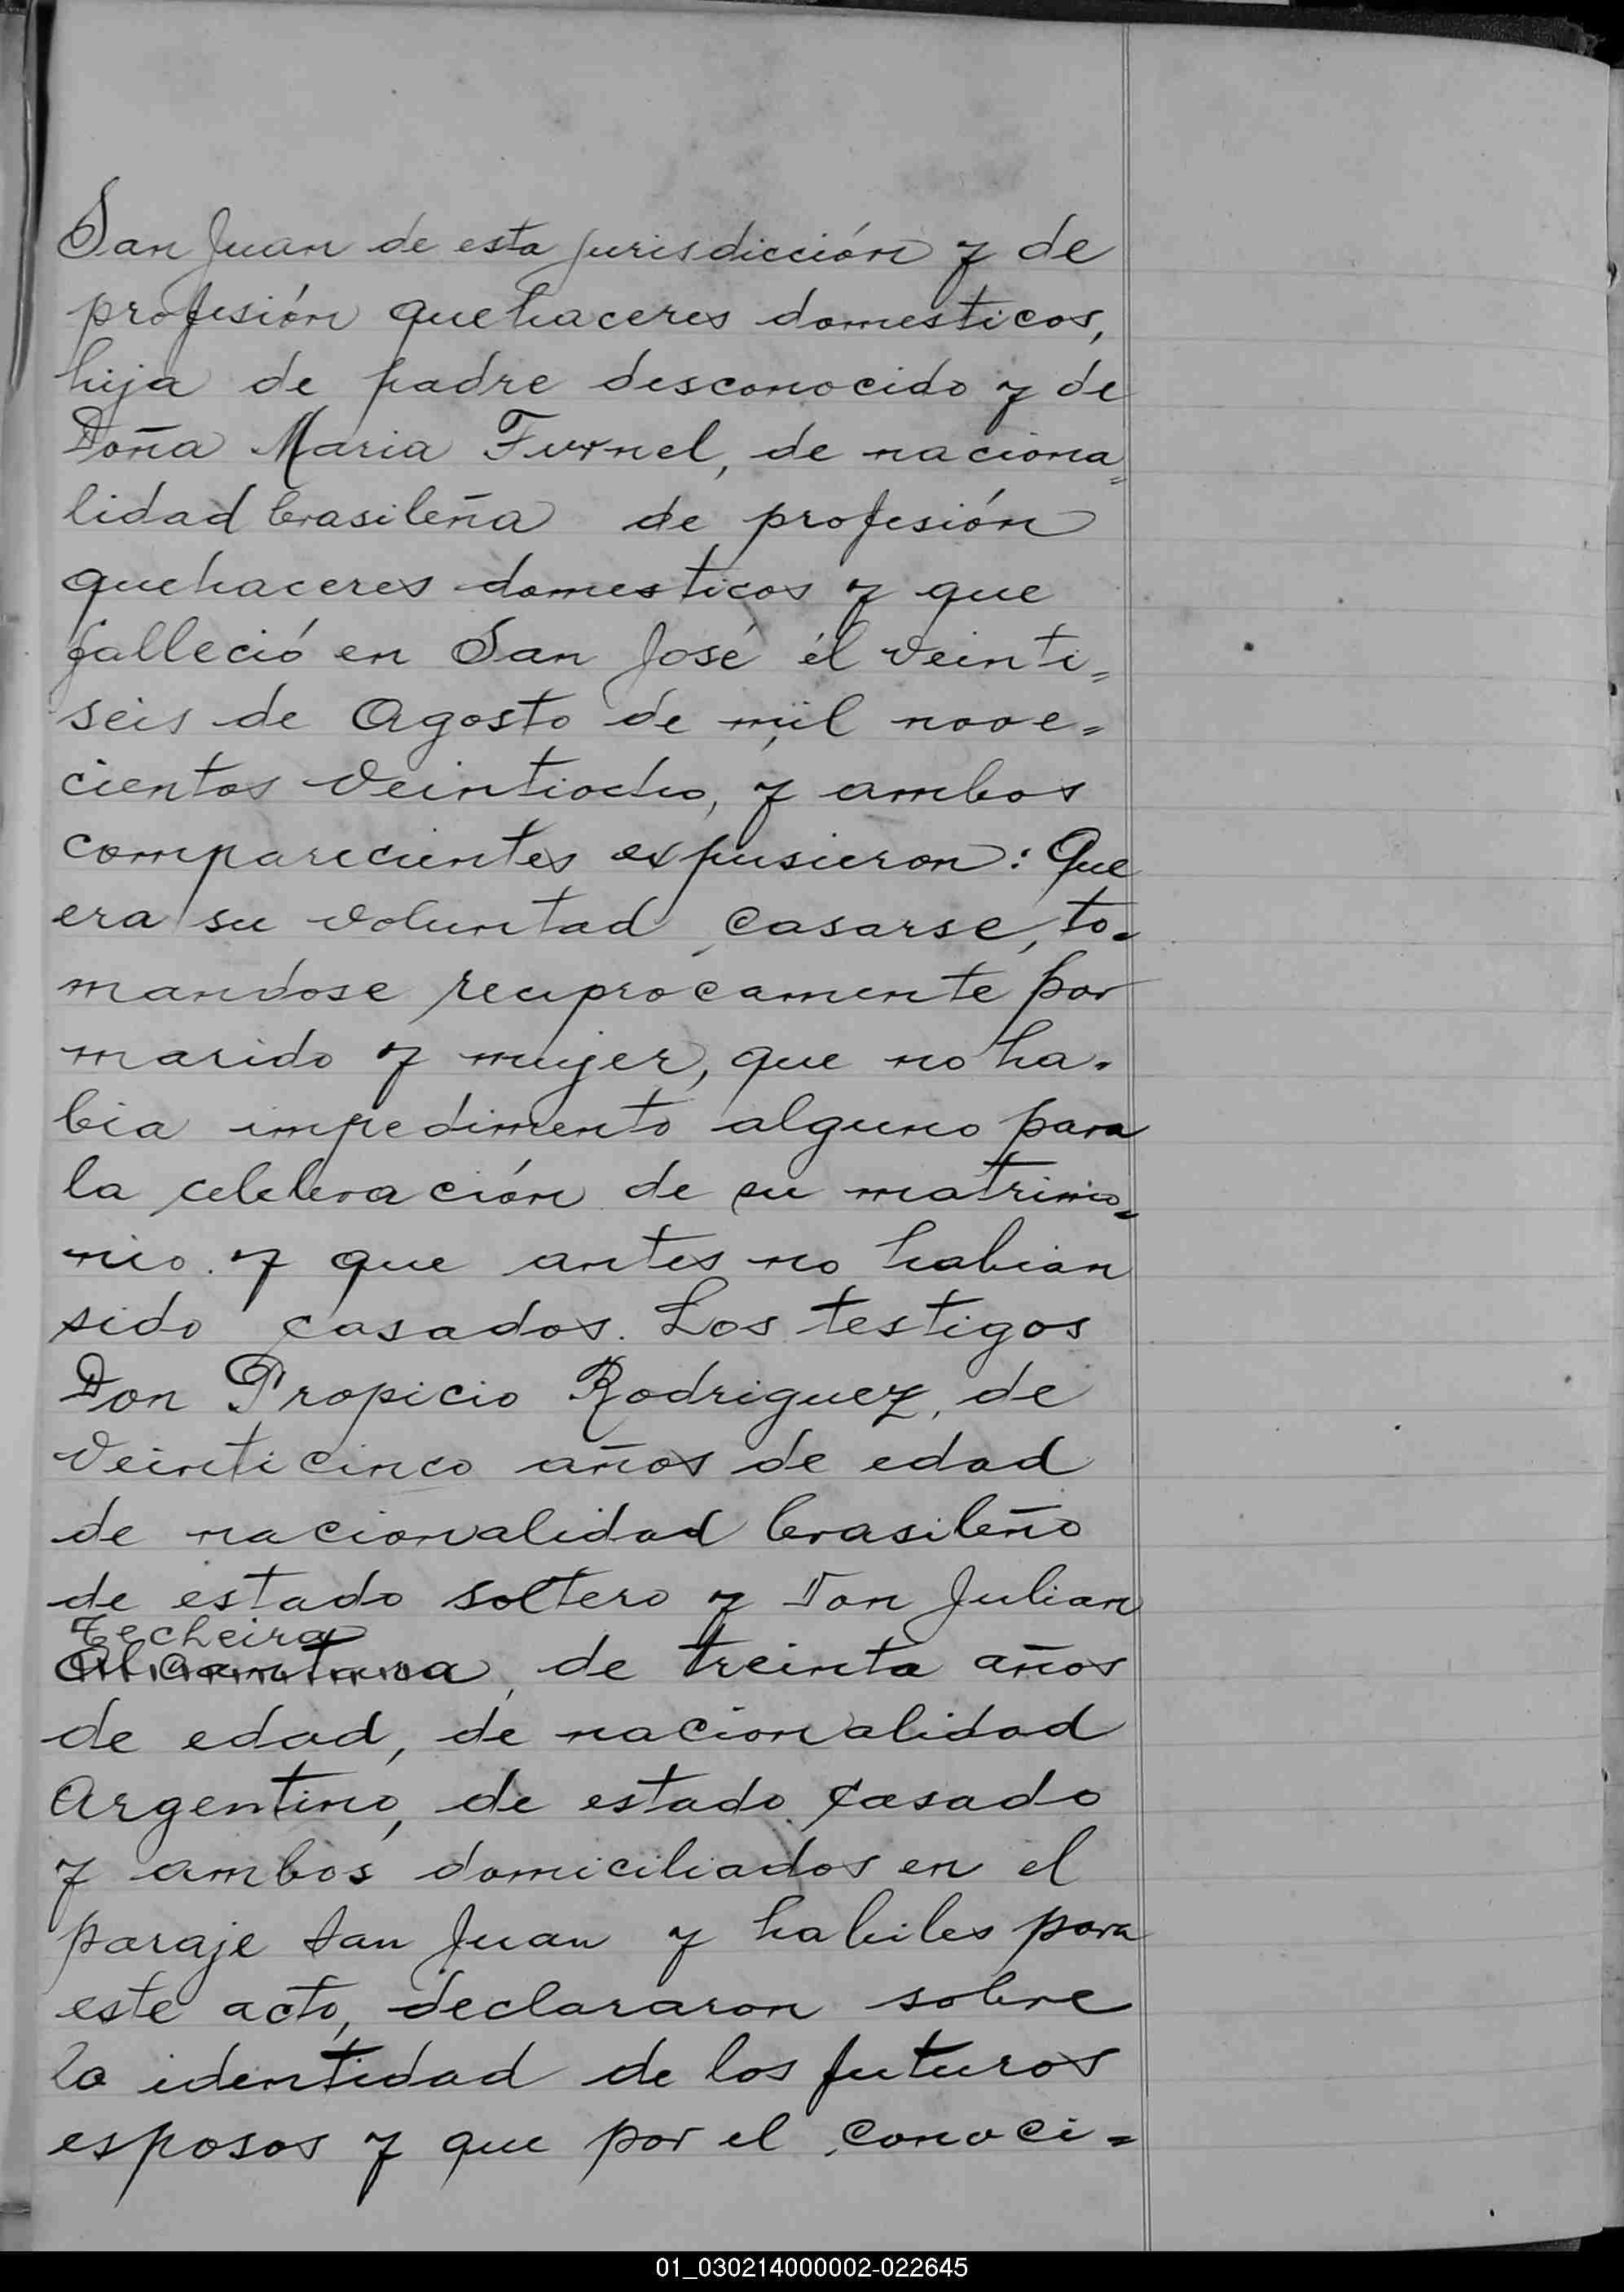 San Juan de esta jurisdicción y de
profesión quehaceres domesticos,
hija de padre desconocido y de
Doña Maria Furnel, de naciona=
lidad brasileña de profesión
quehaceres domesticos y que
falleció en San José el veinti=
seis de Agosto de mil nove=
cientos veintiocho, y ambos
comparecientes expusieron: Que
era su voluntad casarse, to=
mandose reciprocamente por
marido y mujer, que no ha=
bia impedimento alguno para
la celebración de su matrimo=
nio y que antes no habian
sido casados. Los testigos
Don Propicio Rodriguez, de
veinticinco años de edad
de nacionalidad brasileño
de estado soltero y Don Julian
Techeira
Alcantara, de treinta años
de edad, de nacionalidad
Argentino, de estado casado
y ambos domiciliados en el
paraje San Juan y habiles para
este acto, declararon sobre
la identidad de los futuros
esposos y que por el conoci=
01_030214000002-022645